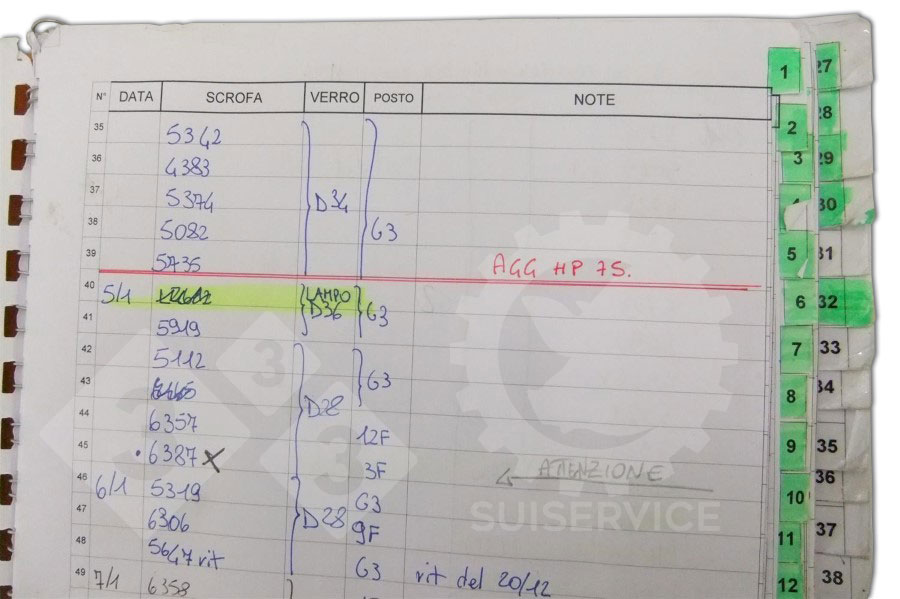 N° DATA SCROFA VERRO POSTO NOTE
35 5342
36 4383
37 5374 D34
38 5082 G3
39 5735
AGG HP 75.
40 5/1 LAMPO
41 5919 D36 G3
42 5112
43 D28 G3
44 6357
45 6387 X 12F
46 6/1 5319 3F ATTENZIONE
47 6306 D28 G3
48 5647 rit 9F
49 7/1 6358 G3 rit del 20/12
1 27
2 28
3 29
4 30
5 31
6 32
7 33
8 34
9 35
10 36
11 37
12 38
333
SUISERVICE